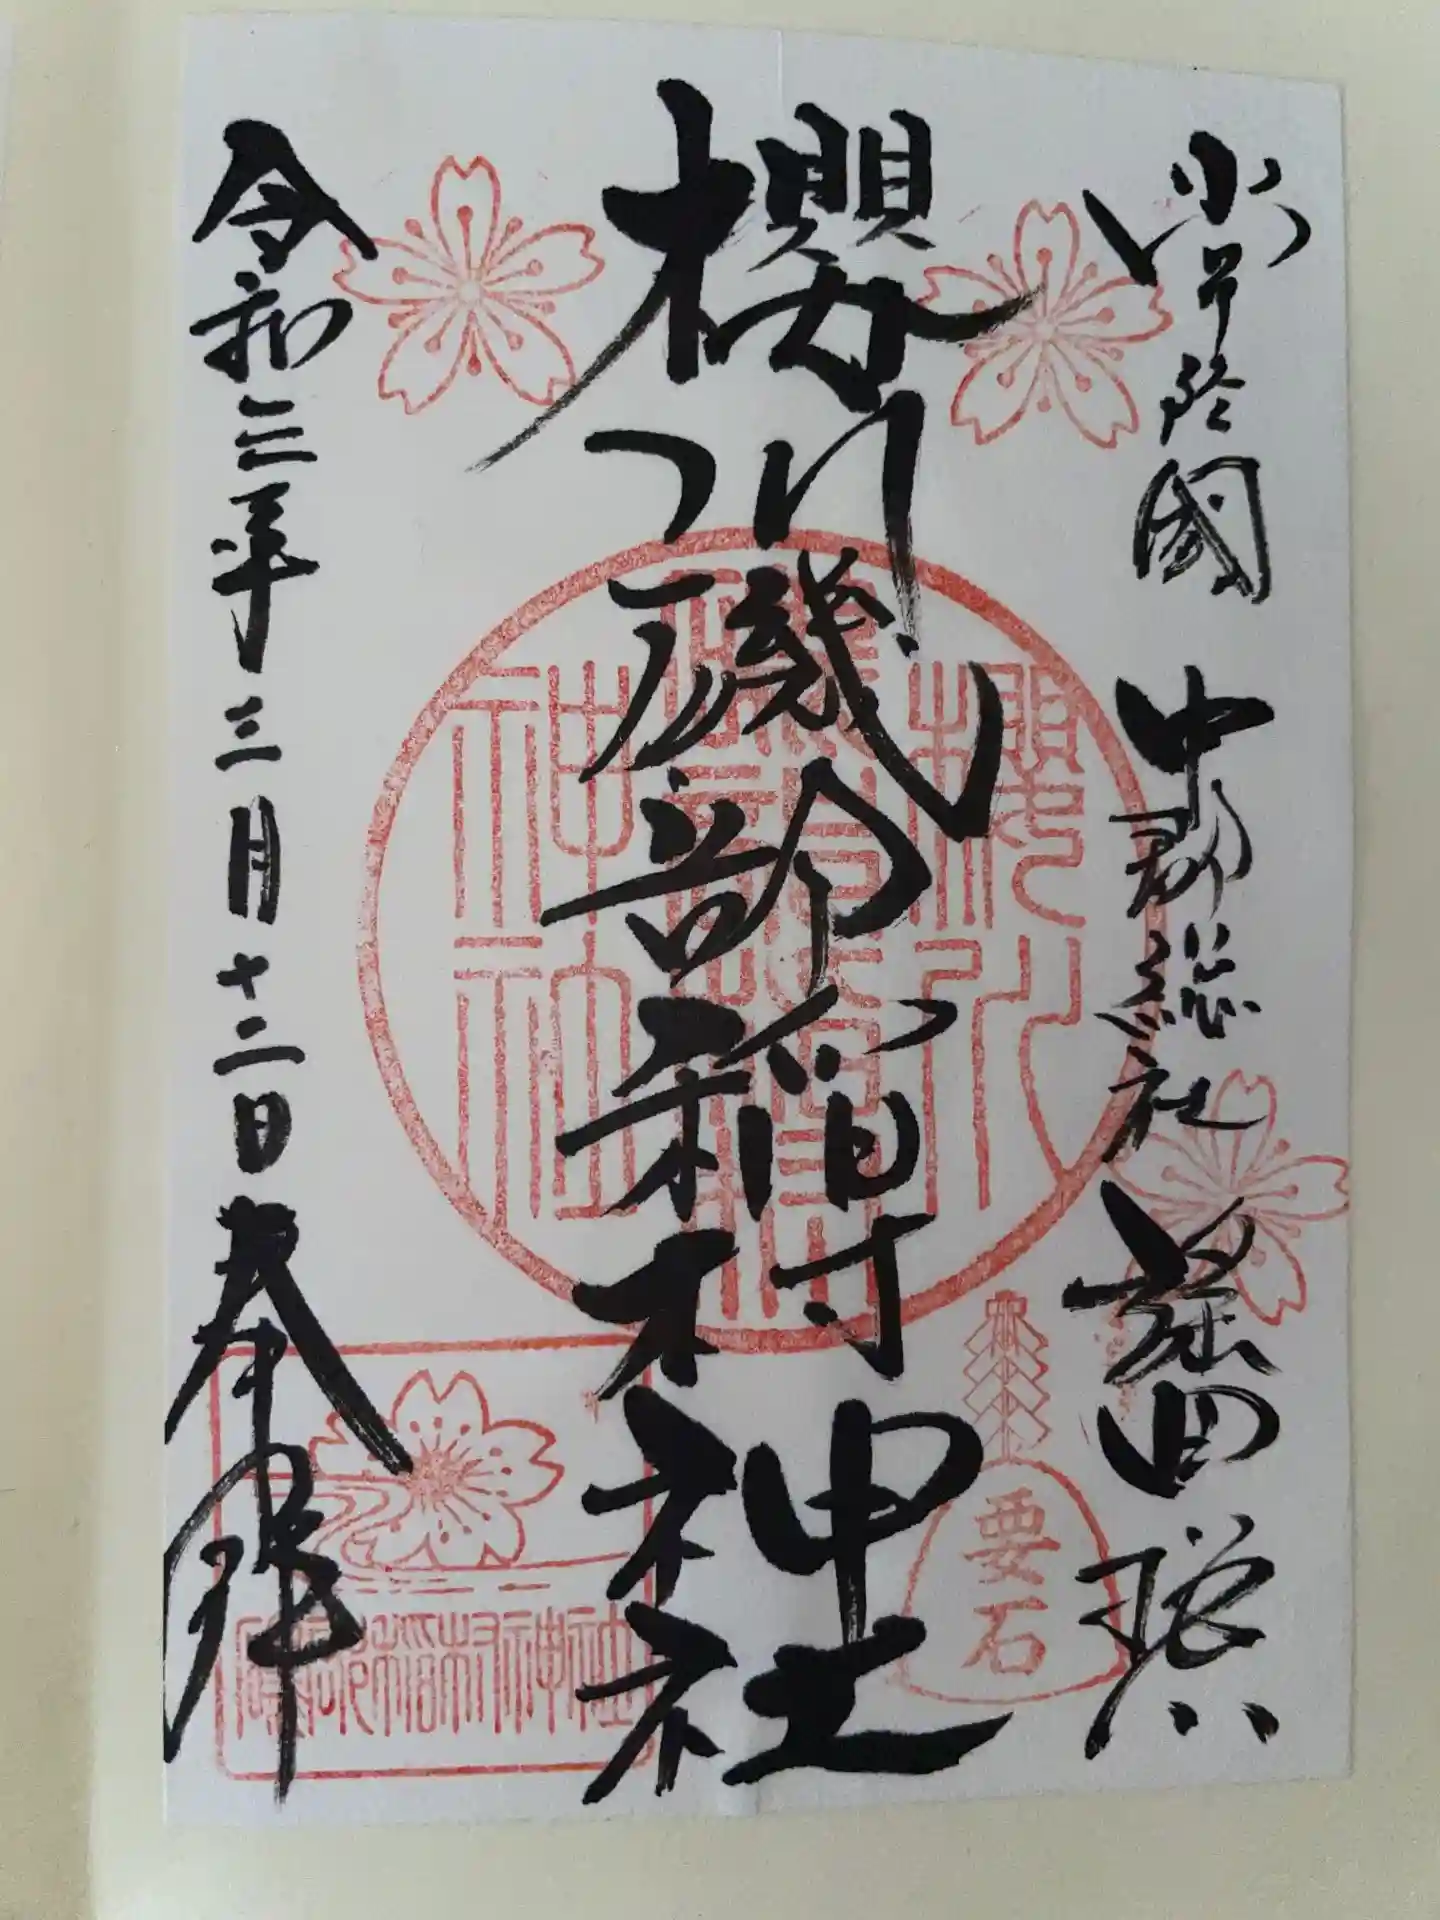 常陸國 中郡総社 磯部
櫻川磯部稲村神社
令和三年三月十二日 奉拝
櫻川
磯部稲村
神社
要石
磯部稲村神社